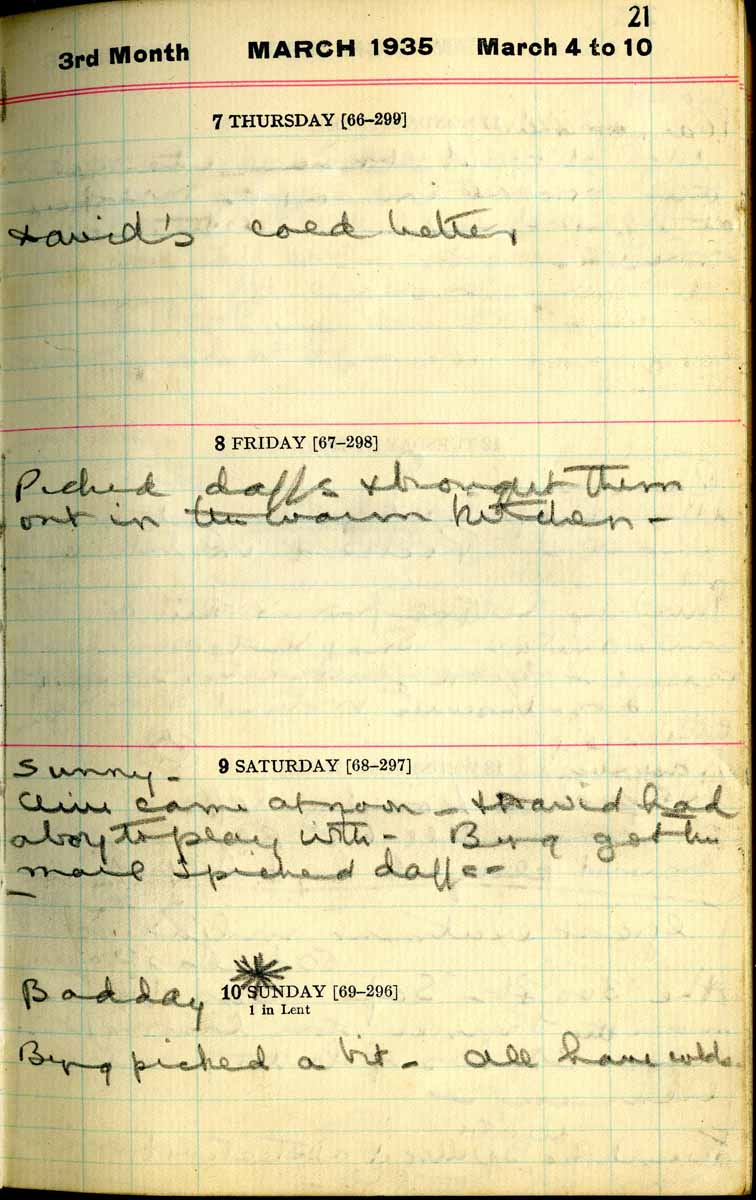 21
3rd Month MARCH 1935 March 4 to 10
7 THURSDAY [66–299]
David's cold better
8 FRIDAY [67–298]
Picked daffs & brought them
out in the warm kitchen –
9 SATURDAY [68–297]
Sunny –
Clive came at noon – & David had
a boy to play with – Byng got the
mail I picked daffs –
Bad day
10 SUNDAY [69–296]
1 in Lent
Byng picked a bit – all have colds